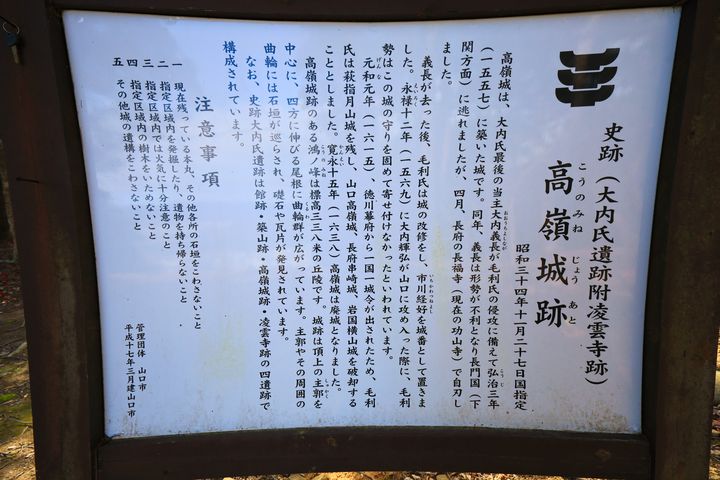 史跡（大内氏遺跡附凌雲寺跡）
高嶺城跡
こうのみね じょう あと
昭和三十四年十一月二十七日国指定
高嶺城は、大内氏最後の当主大内義長が毛利氏の侵攻に備えて弘治三年
（一五五七）に築いた城です。同年、義長は形勢が不利となり長門国（下
関方面）に逃れましたが、四月、長府の長福寺（現在の功山寺）で自刃し
ました。
義長が去った後、毛利氏は城の改修をし、市川経好を城番として置きま
した。永禄十二年（一五六九）に大内輝弘が山口に攻め入った際に、毛利
勢はこの城の守りを固めて寄せ付けなかったといわれています。
元和元年（一六一五）、徳川幕府から一国一城令が出されたため、毛利
氏は萩指月山城を残し、山口高嶺城、長府串崎城、岩国横山城を破却する
こととしました。寛永十五年（一六三八）高嶺城は廃城となりました。
高嶺城跡のある鴻ノ峰は標高三三八米の丘陵です。城跡は頂上の主郭を
中心に、四方に伸びる尾根に曲輪群が広がっています。主郭やその周囲の
曲輪には石垣が巡らされ、礎石や瓦片が発見されています。
なお、史跡大内氏遺跡は館跡・築山跡・高嶺城跡・凌雲寺跡の四遺跡で
構成されています。
注意事項
一 現在残っている本丸、その他各所の石垣をこわさないこと
二 指定区域内を発掘したり、遺物を持ち帰らないこと
三 指定区域内では火気に十分注意のこと
四 指定区域内の樹木をいためないこと
五 その他城の遺構をこわさないこと
管理団体 山口市
平成十七年三月建山口市